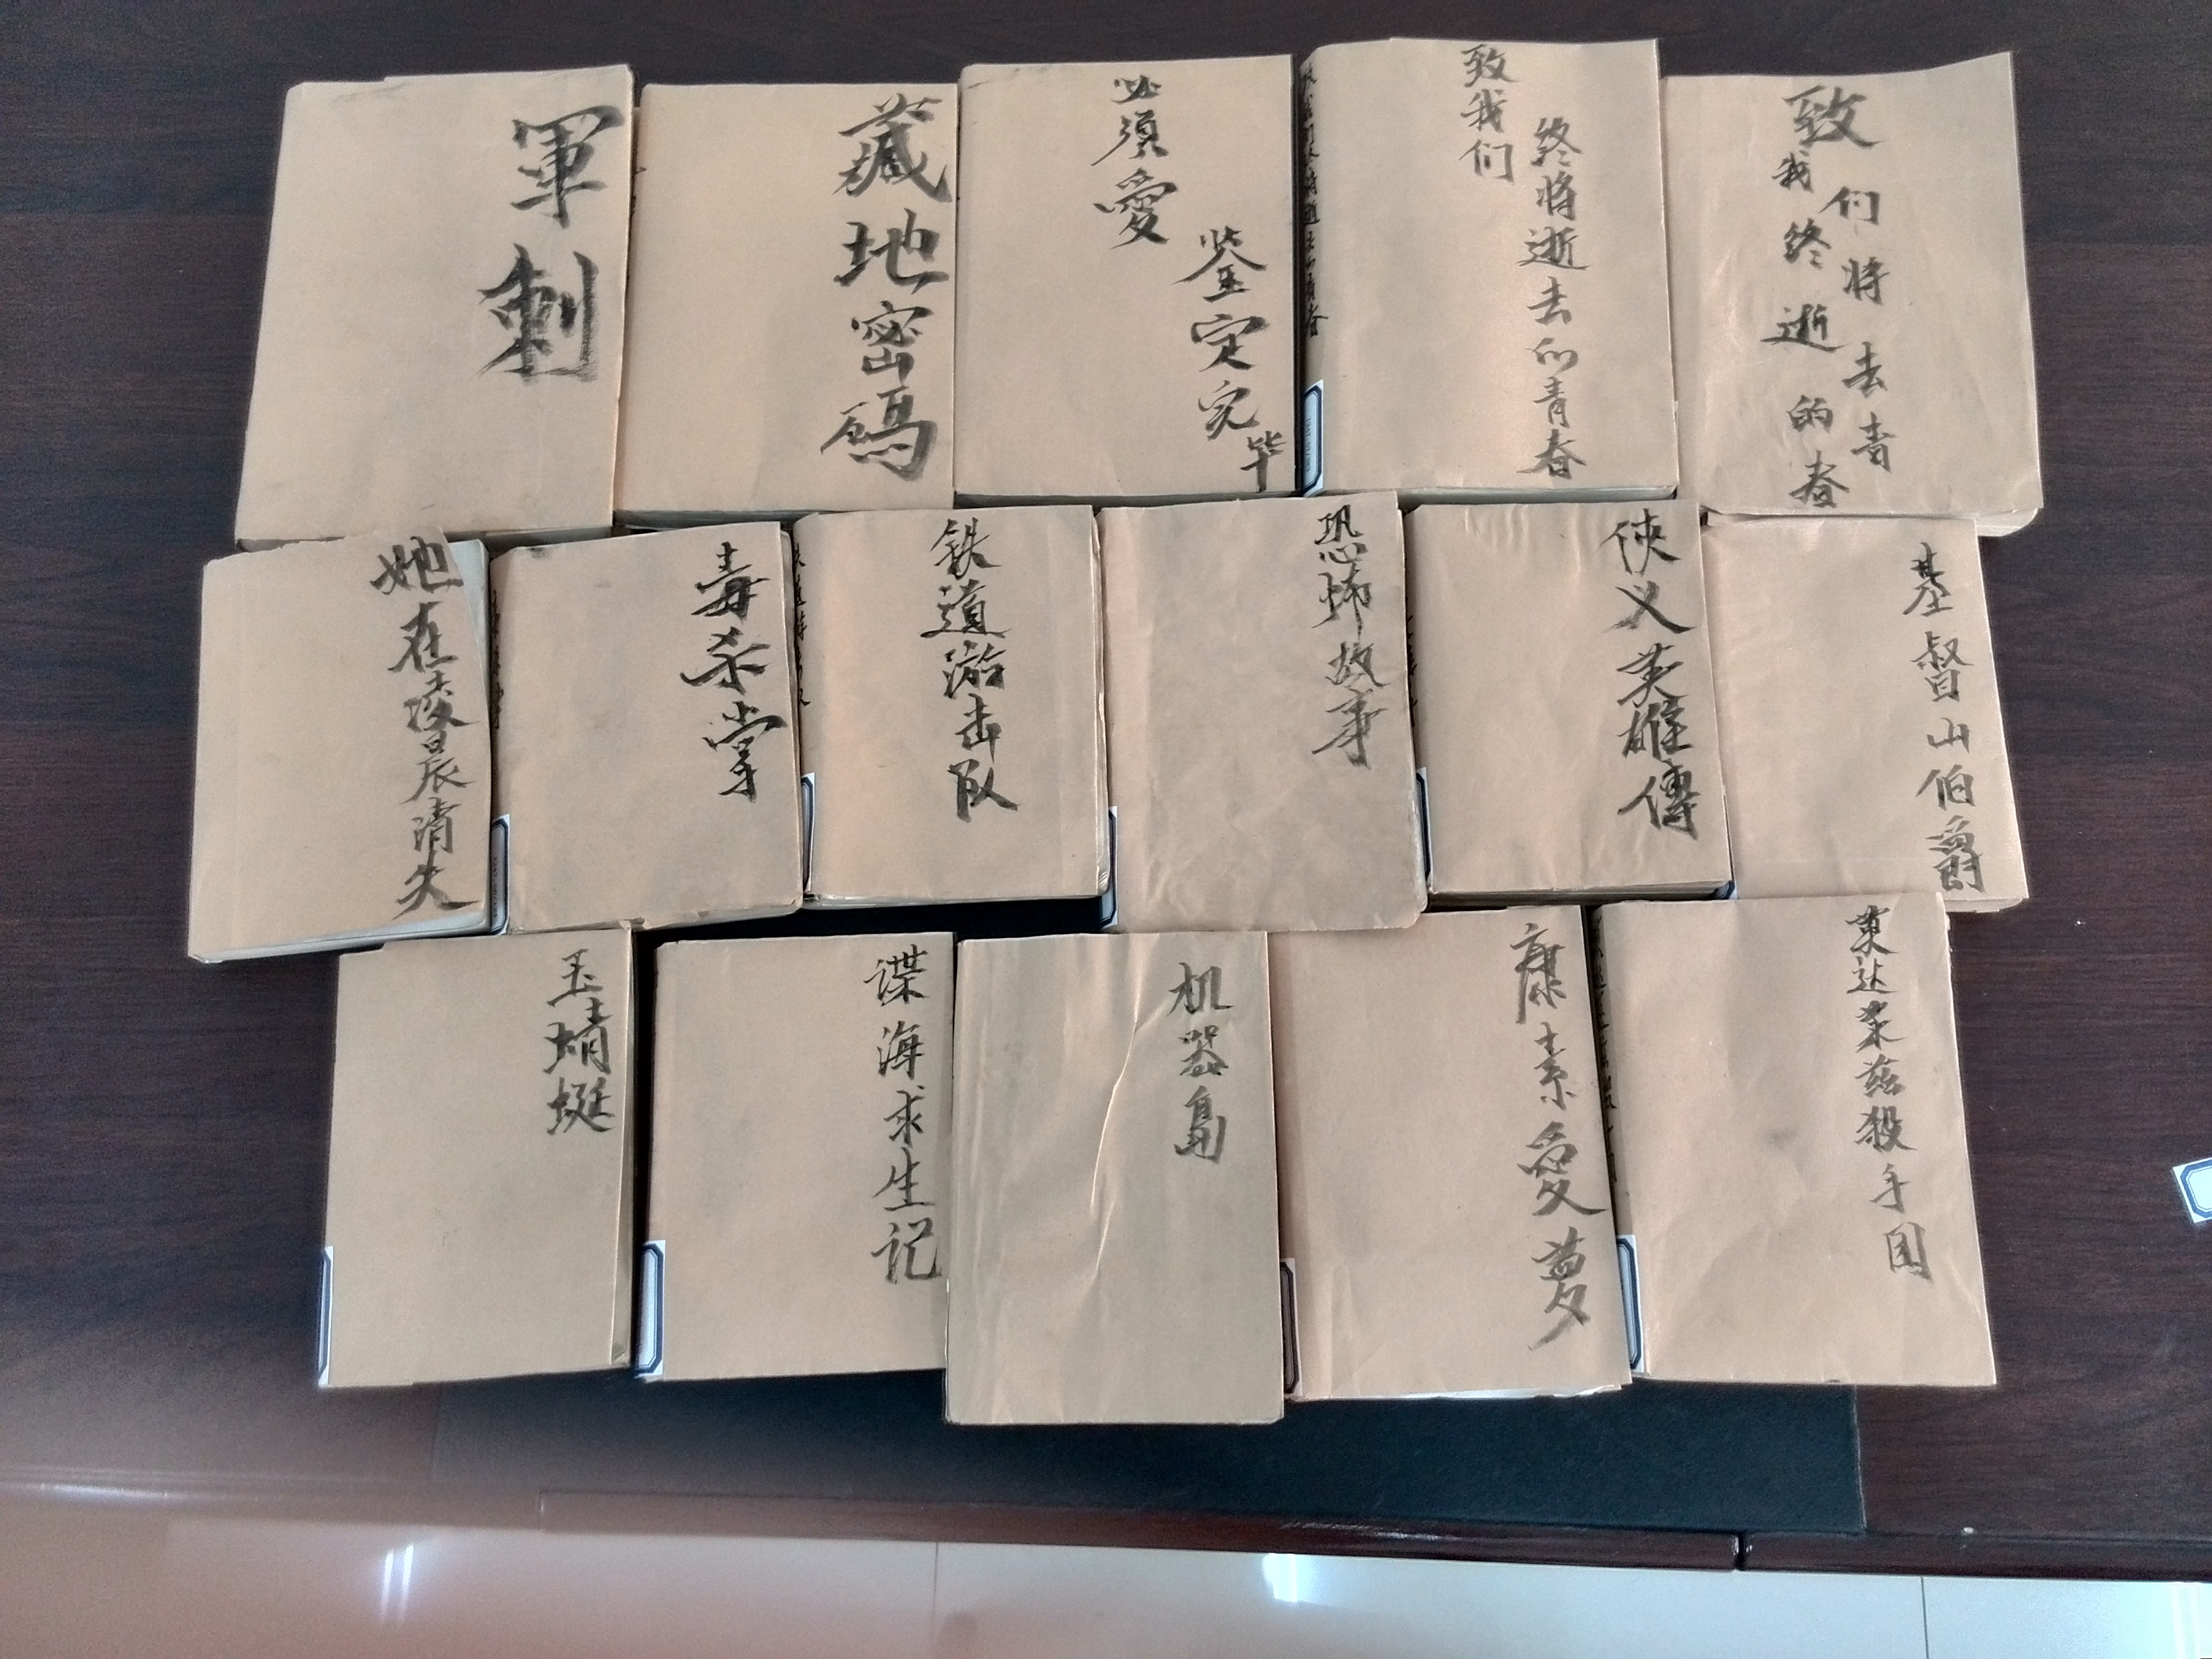 軍刺
藏地密碼
必須愛
鉴定完毕
致我们
终将逝去的青春
致我们终将逝去的青春
她在凌晨消失
毒杀掌
铁道游击队
恐怖故事
侠义英雄傳
基督山伯爵
玉蜻蜓
谍海求生记
机器島
康素爱萝
東达桑兹殺手团